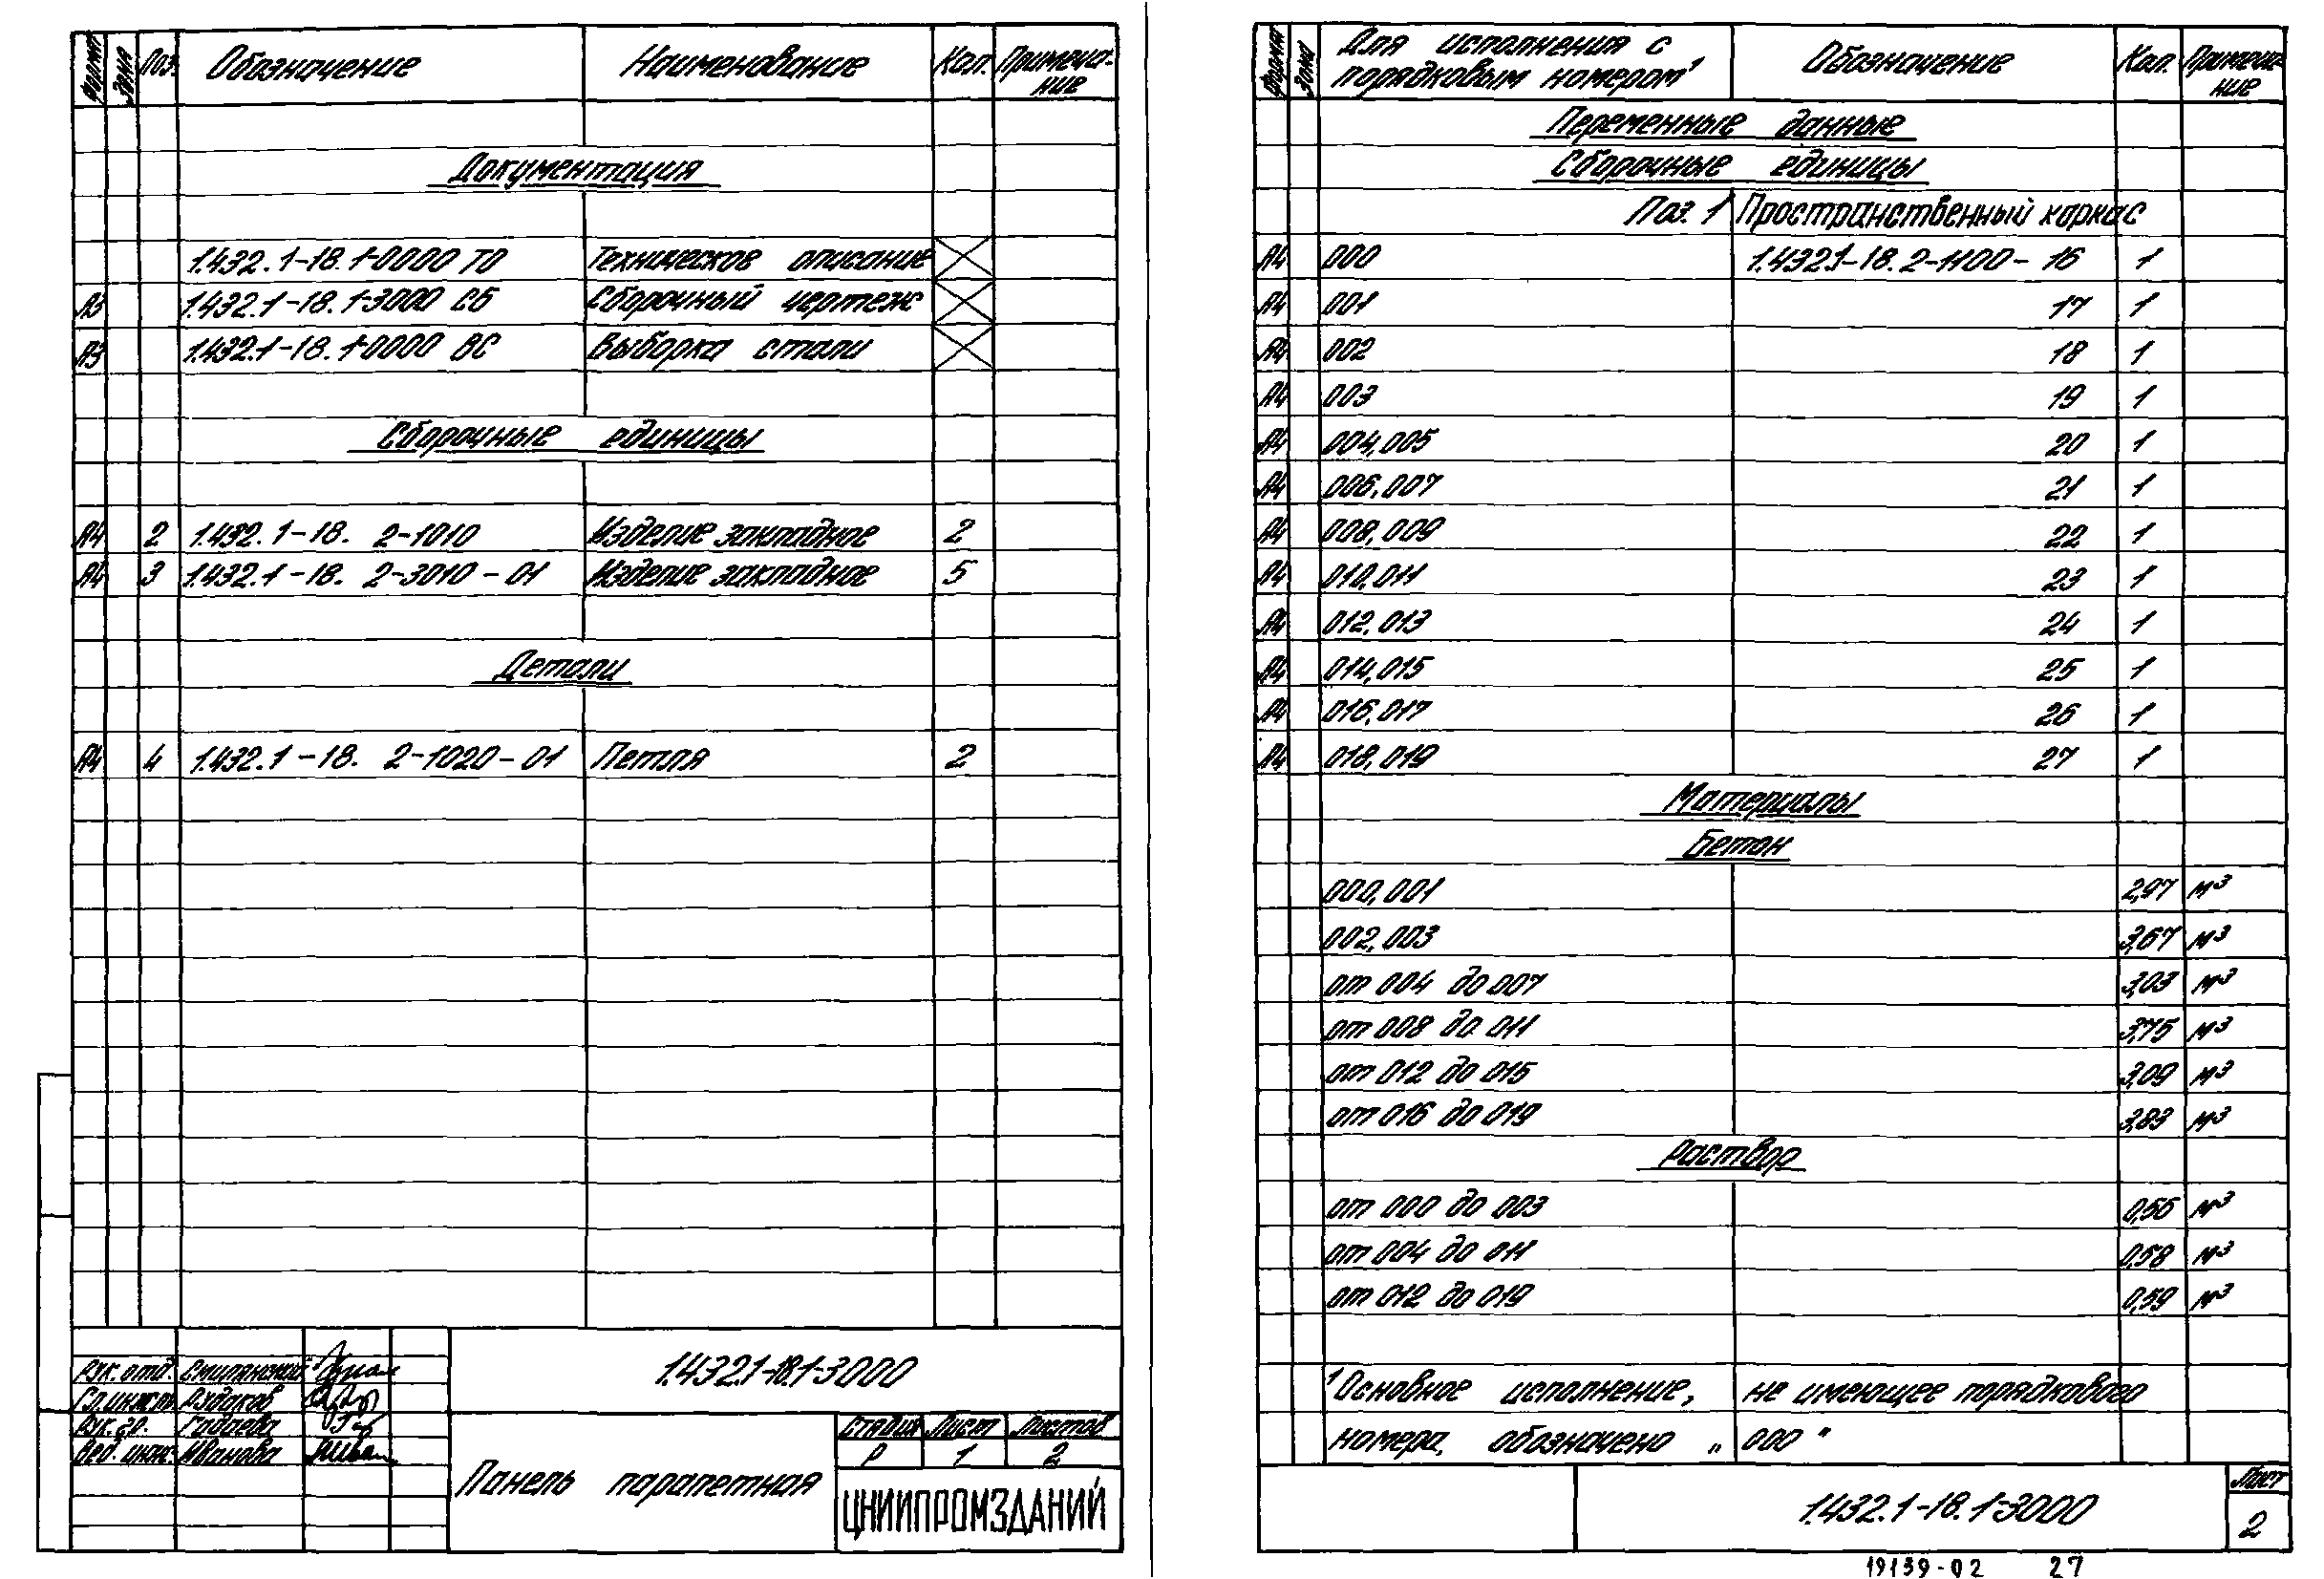 Формат Зона Поз. Обозначение Наименование Кол. Примеча-
ние
Документация
1.432.1-18.1-0000 ТО Техническое описание
А3 1.432.1-18.1-3000 СБ Сборочный чертеж
А3 1.432.1-18.1-0000 ВС Выборка стали
Сборочные единицы
А4 2 1.432.1-18. 2-1010 Изделие закладное 2
А4 3 1.432.1-18. 2-3010-01 Изделие закладное 5
Детали
А4 4 1.432.1-18. 2-1020-01 Петля 2
1.432.1-18.1-3000
Рук. отд. Смилянский
Гл. инж. пр.
Рук. гр. Годаева
Вед. инж. Иванова
Панель парапетная
Стадия Лист Листов
Р 1 2
ЦНИИПРОМЗДАНИЙ
Формат Зона Для исполнения с
порядковым номером¹ Обозначение Кол. Примеча-
ние
Переменные данные
Сборочные единицы
Поз. 1 Пространственный каркас
А4 000 1.432.1-18.2-1100-16 1
А4 001 17 1
А4 002 18 1
А4 003 19 1
А4 004,005 20 1
А4 006,007 21 1
А4 008,009 22 1
А4 010,011 23 1
А4 012,013 24 1
А4 014,015 25 1
А4 016,017 26 1
А4 018,019 27 1
Материалы
Бетон
000,001 2,97 м³
002,003 3,67 м³
от 004 до 007 3,03 м³
от 008 до 011 3,75 м³
от 012 до 015 3,09 м³
от 016 до 019 3,83 м³
Раствор
от 000 до 003 0,56 м³
от 004 до 011 0,58 м³
от 012 до 019 0,59 м³
¹Основное исполнение, не имеющее порядкового
номера, обозначено „000"
1.432.1-18.1-3000
Лист
2
19139-02 27